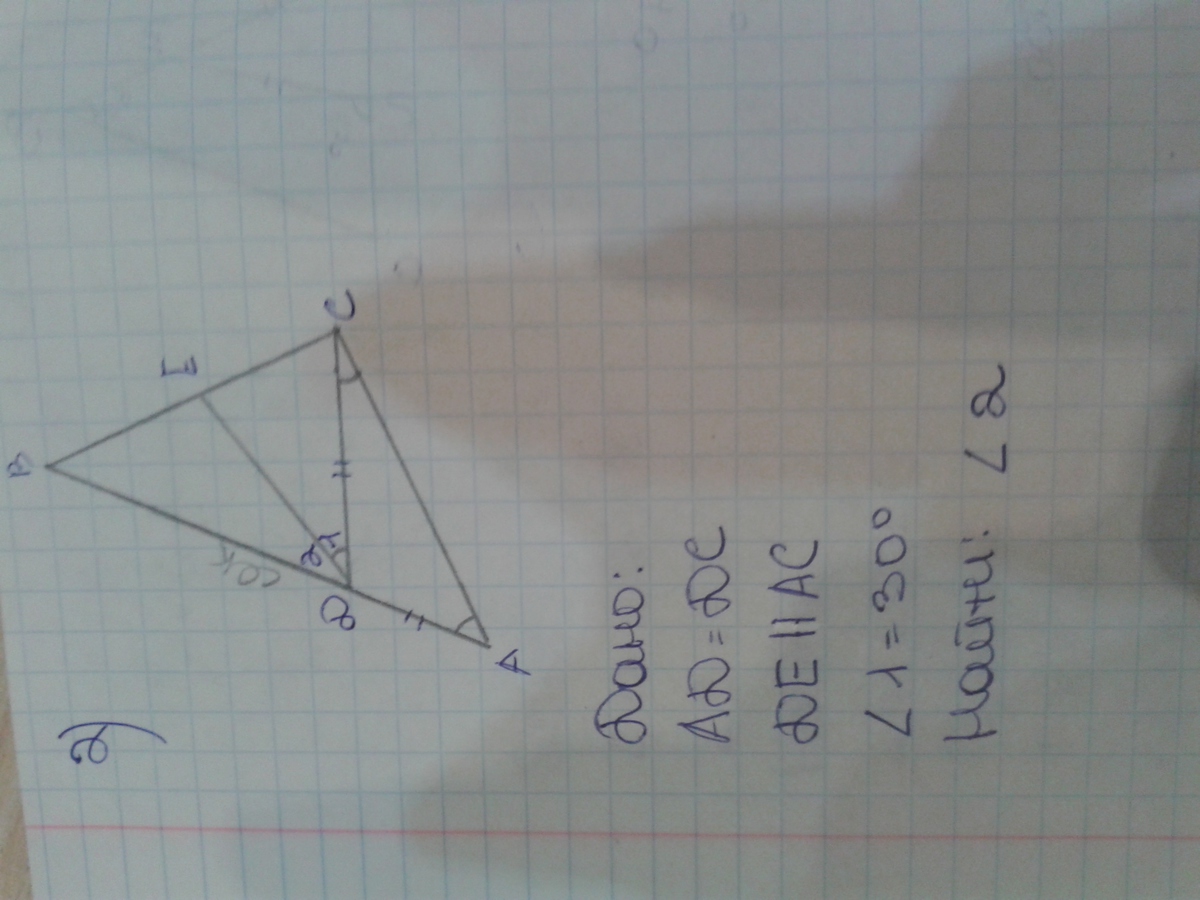 2)
B
E
2
1
D
C
A
Дано:
AD = DC
DE || AC
∠1 = 30°
Найти: ∠2